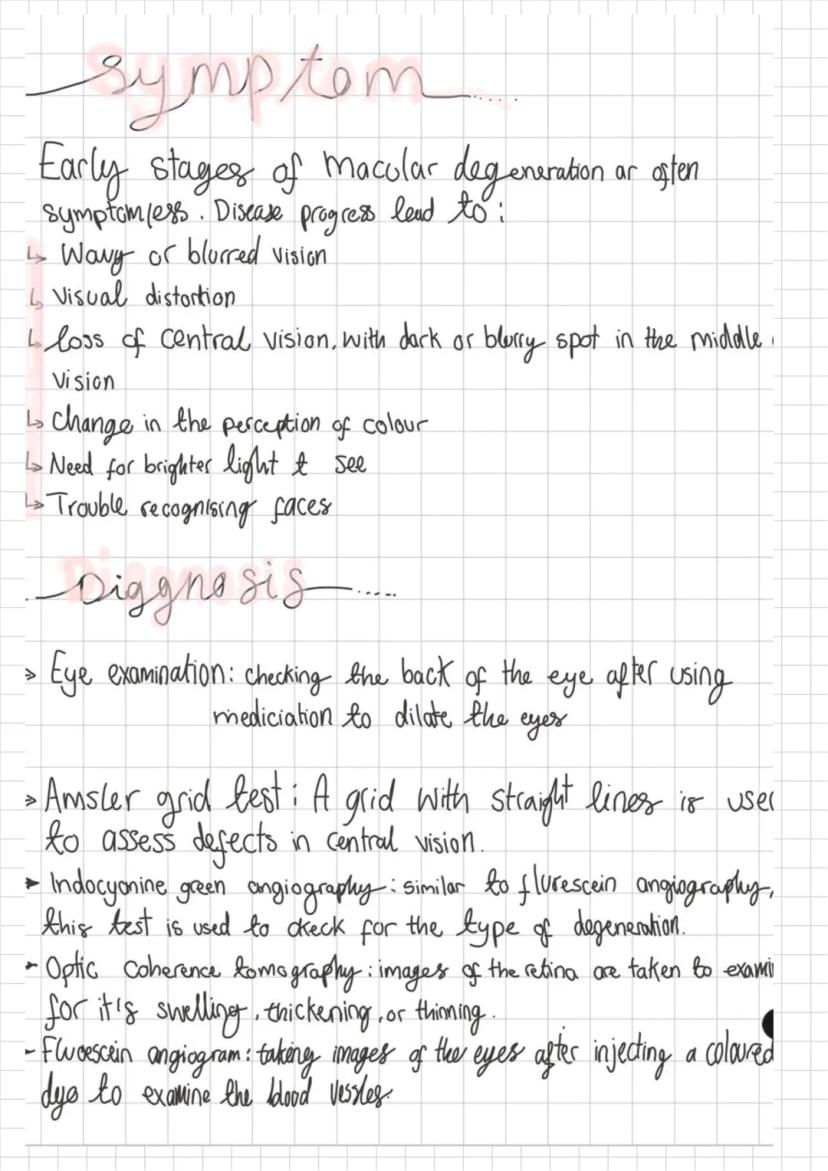 Symptom
Early stages of Macular degeneration ar often
symptomless. Disease progress lead to:
↳ Wavy or blurred vision
↳ Visual distortion
↳ loss of central vision, with dark or blurry spot in the middle
vision
↳ Change in the perception of colour
↳ Need for brighter light t see
↳ Trouble recognising faces
Diagnosis
> Eye examination: checking the back of the eye after using
mediciation to dilate the eyes
> Amsler grid test: A grid with straight lines is used
to assess defects in central vision.
➤ Indocyanine green angiography: similar to flurescein angiography,
this test is used to check for the type of degeneration.
➤ Optic coherence tomography: images of the retina are taken to exami
for it's swelling, thickening, or thinning.
- Fluoescein angiogram: taking images of the eyes after injecting a coloured
dye to examine the blood vessles.